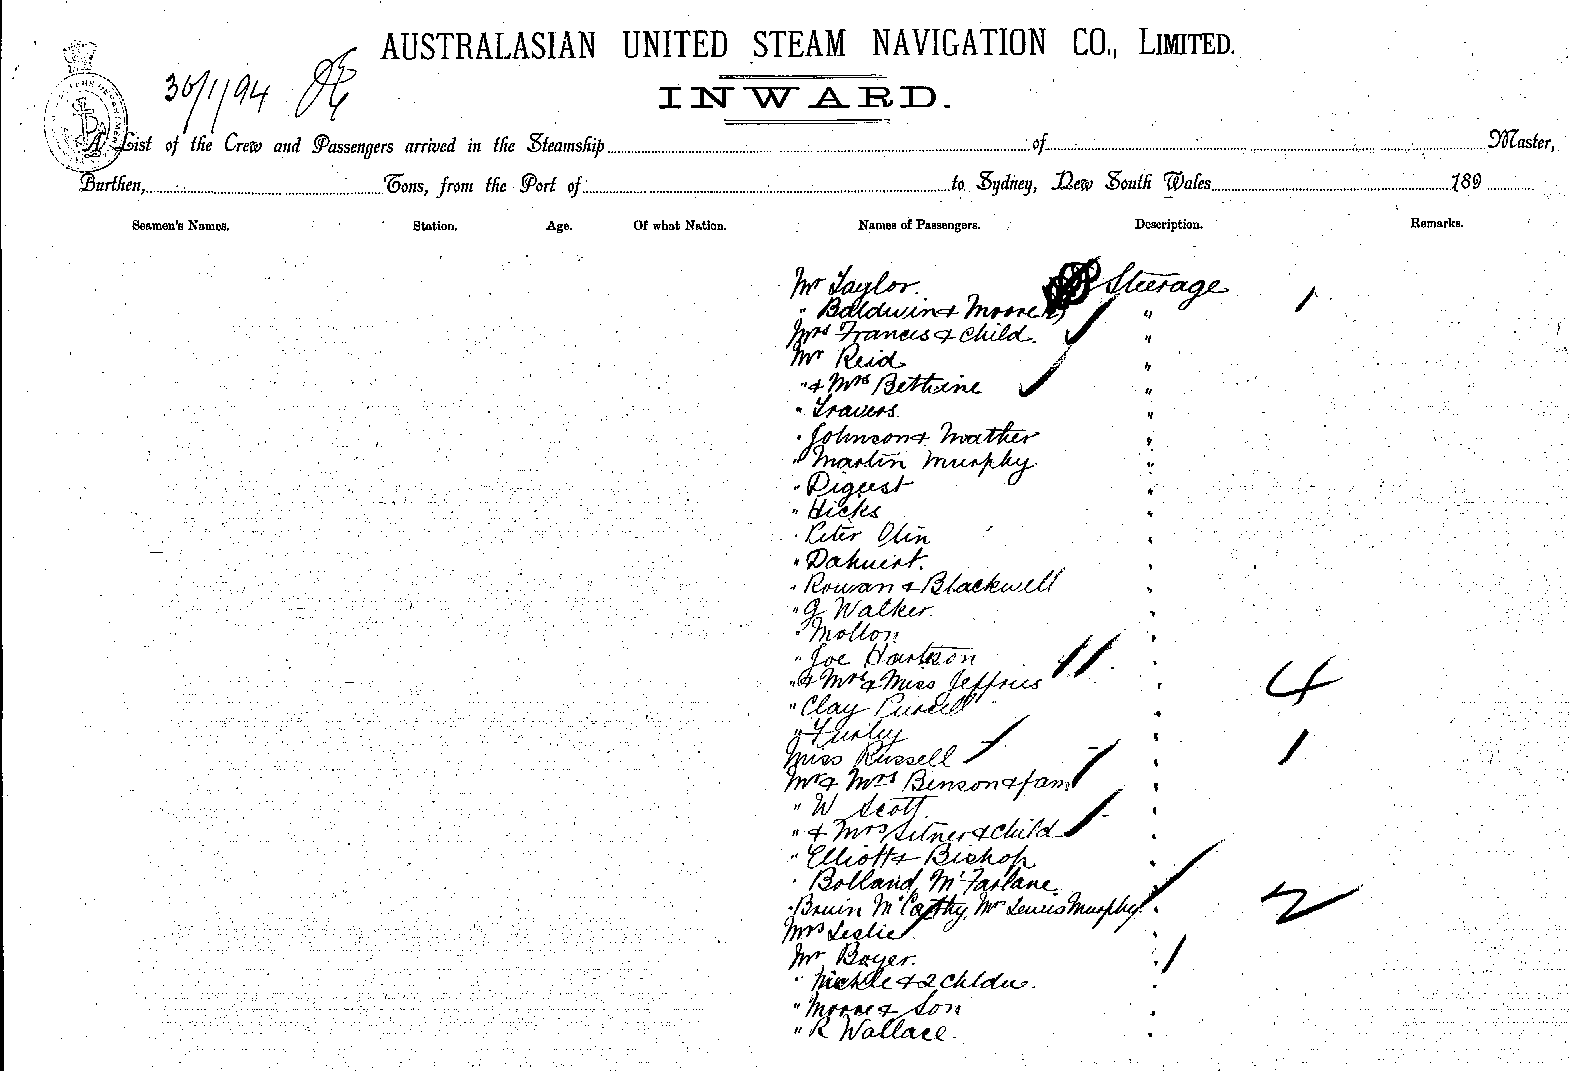 AUSTRALASIAN UNITED STEAM NAVIGATION CO., LIMITED.
30/1/94
INWARD.
A List of the Crew and Passengers arrived in the Steamship of Master,
Burthen, Tons, from the Port of to Sydney, New South Wales 189
Seamen's Names. Station. Age. Of what Nation. Names of Passengers. Description. Remarks.
Mr Taylor. Steerage 1
" Baldwin & Moore "
Mrs Francis & Child. "
Mr Reid "
" & Mrs Bethune "
" Travers. "
" Johnson & Mather "
" Martin Murphy "
" Digest "
" Hicks "
" Peter Olin "
" "
" Rowan & Blackwell "
" G Walker "
" Molton "
" Joe Harrison "
" & Mrs & Miss Jeffries " 4
" Clay Purcell "
" Furley "
Miss Russell " 1
Mr & Mrs Benson & fam "
" W Scott "
" & Mrs Sitner & Child "
" Elliott & Bishop "
" Bolland, McFarlane "
" Bruin McCarthy, Mr Lewis Murphy " 2
Mrs Leslie
Mr Boyer. "
" & 2 Childn. "
" Moore & Son "
" R Wallace. "